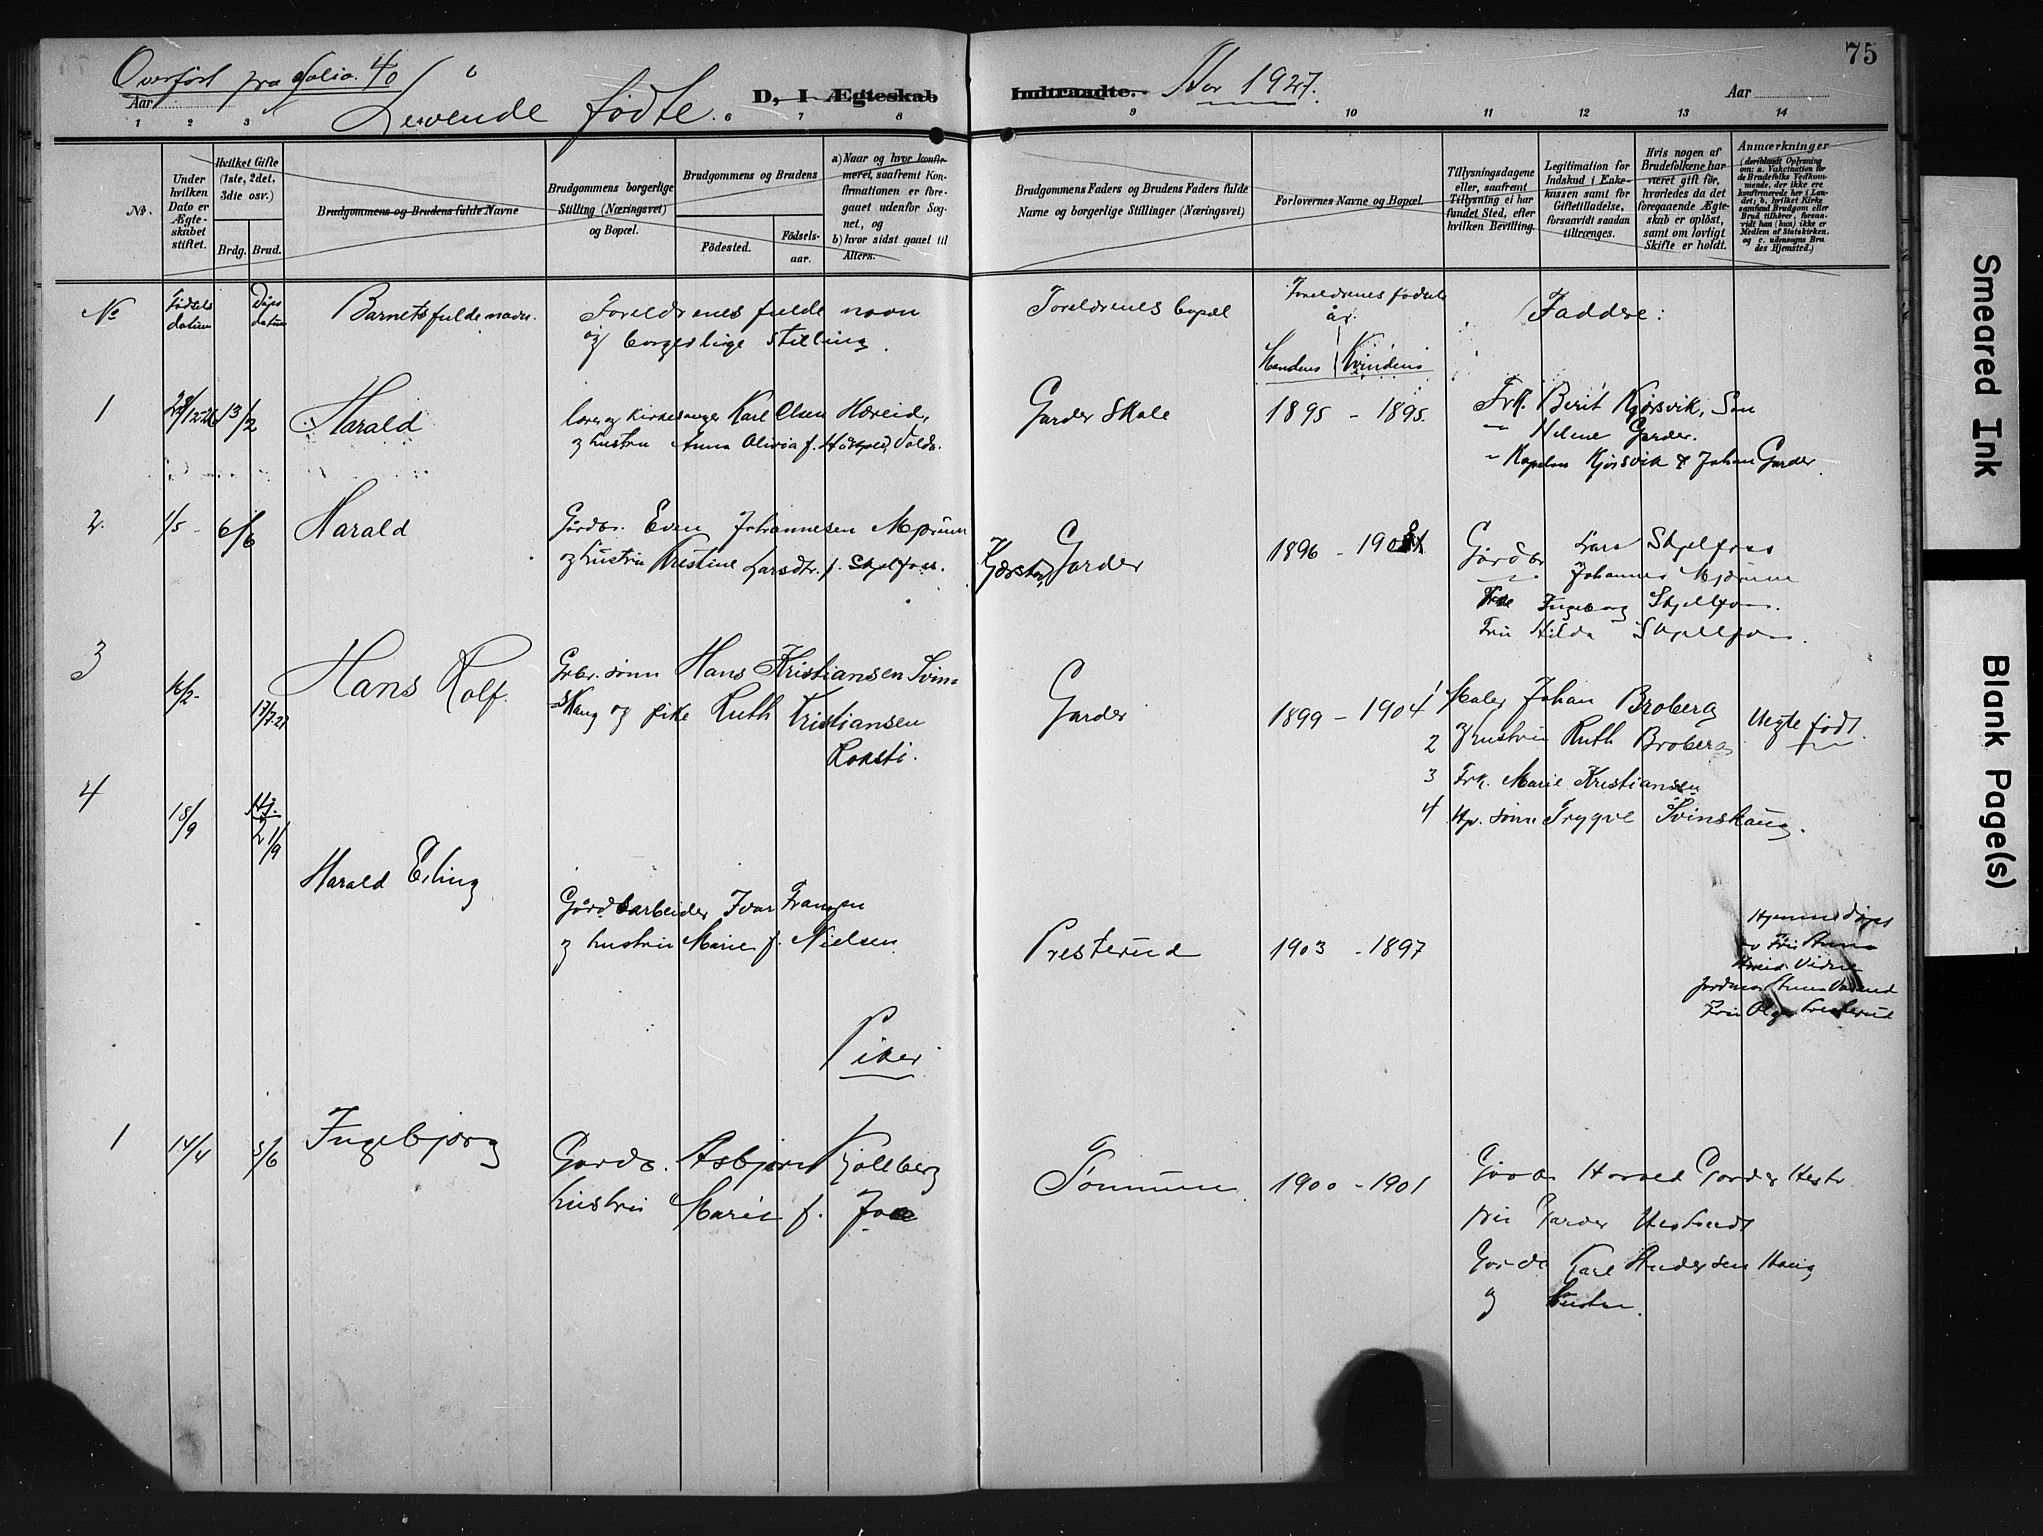 Overført fra folio. 40
Levende fødte.
D, I Ægteskab
Indtraadte.
Aar 1927.
75
Aar
Aar
1 2 3 6 7 8 9 10 11 12 13 14
No.
Under hvilken Dato er Ægteskabet stiftet.
Hvilket Gifte (1ste, 2det, 3dte osv.)
Brdg. Brud.
Brudgommens og Brudens fulde Navne
Brudgommens borgerlige Stilling (Næringsvei) og Bopæl.
Brudgommens og Brudens
Fødested.
Fødselsaar.
a) Naar og hvor konfirmeret, saafremt Konfirmationen er foregaaet udenfor Sognet, og
b) hvor sidst gaaet til Alters.
Brudgommens Faders og Brudens Faders fulde Navne og borgerlige Stillinger (Næringsvei)
Forlovernes Navne og Bopæl.
Tillysningsdagene eller, saafremt Tillysning ei har fundet Sted, efter hvilken Bevilling.
Legitimation for Indskud i Enkekassen samt for Giftetilladelse, forsaavidt saadan tiltrænges.
Hvis nogen af Brudefolkene har været gift før, hvorledes da det foregaaende Ægteskab er opløst, samt om lovligt Skifte er holdt.
Anmærkninger
(deriblandt Oplysning om: a. Vakcination for de Brudefolks Vedkommende, der ikke ere konfirmerede her i Landet; b. hvilket Kirkesamfund Brudgom eller Brud tilhører, forsaavidt han (hun) ikke er Medlem af Statskirken. og c. udensogns Brudes Hjemsted.)
No
Fødsels datum
Døps datum
Barnets fulde navn.
Foreldrenes fulde navn
og borgerlige stilling.
Foreldrenes bopæl
Foreldrenes fødsels år.
Mandens Kvindens
Faddere:
1 13/2 Harald
lærer og kirkesanger Karl Olsen Høreid,
og hustru Anna Olivia f.
Garder Skole
1895 - 1895.
Frk. Berit Kjørsvik,
" Helene Garder.
" Kapelan Kjørsvik & Johan Garder
2. 1/5 - 6/6 Harald
Gårdbr. Even Johannesen Mjørum
og hustru Kristine Larsdtr. f. Skjelfoss.
Garder
1896 - 190
Gårdbr Lars Skjelfoss
Johannes Mjørum
Ingeborg Skjellfoss.
Fru Hilda Skjellfoss.
3 16/2- 17/7 27 Hans Rolf.
Grbr. sønn Hans Kristiansen Svins
skaug og pike Ruth Kristiansen
Garder
1899 - 1904
1 Maler Johan Broberg
2 og hustru Ruth Broberg
3 Frk. Marie Kristiansen
4 sønn Trygve Svinskaug.
Uegte født.
4 18/9 Hj. 21/9
Harald Erling
Gårdbarbeider Ivar Fransen
og hustru Marie f. Nielsen
Presterud
1903 - 1897
Hjemmedøpt
av Fru Anna
Fru Olga Presterud
Piker
1 14/4 5/6 Ingebjørg
Gårdb. Asbjørn Kjølberg
hustru Marie f.
Sonnum.
1900 - 1901
Harald Garder
fru Garder
Karl Andersen Haug
og hustru.
Smeared Ink
Blank Page(s)